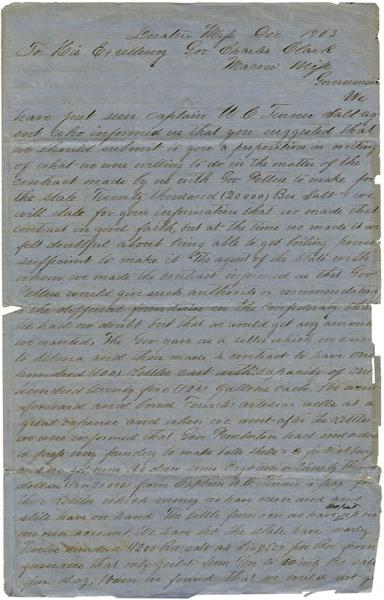 Decatur Miss Dec 1863
To His Excellency Gov Charles Clark
Macon Miss
Governor
We
have just seen Captain W C Turner Salt ag
ent who informed us that you suggested that
we should submit to you a proposition in writing
of what we were willing to do in the matter of the
contract made by us with Gov Pettus to make for
the state Twenty thousand (20000) Bus Salt we
will state for your information that we made that
contract in good faith, but at the time we made it we
felt doubtful about being able to get boiling power
sufficient to make it The agent of the State with
whom we made the contract informed us that Gov
Pettus would give such authority or recommendation
to the different founderies in the Confederacy that
he had no doubt but that we would get any amount
we wanted, The Gov gave us a letter which we carri
to Selma and then made a contract to have one
hundred (100) Kettles cast with capacity of one
hundred twenty five (125) gallons each. We went
forward and bored Fourteen artesian wells at a
great expense and when we went after the Kettles
we were informed that Gen Pemberton had sent orders
to the foundery to make balls shells &c for Vicksburg
and we got none We drew some Eighteen or Twenty thou
dollars from Captain W C Turner to pay for
these Kettles which money we have never used and
still have on hand The little furnace we have
on our own account. We have let the state have nearly
Twelve hundred 1200 Bus salt at per Bus from
furnaces that only yield from Ten to
per day, When we found that we could not g